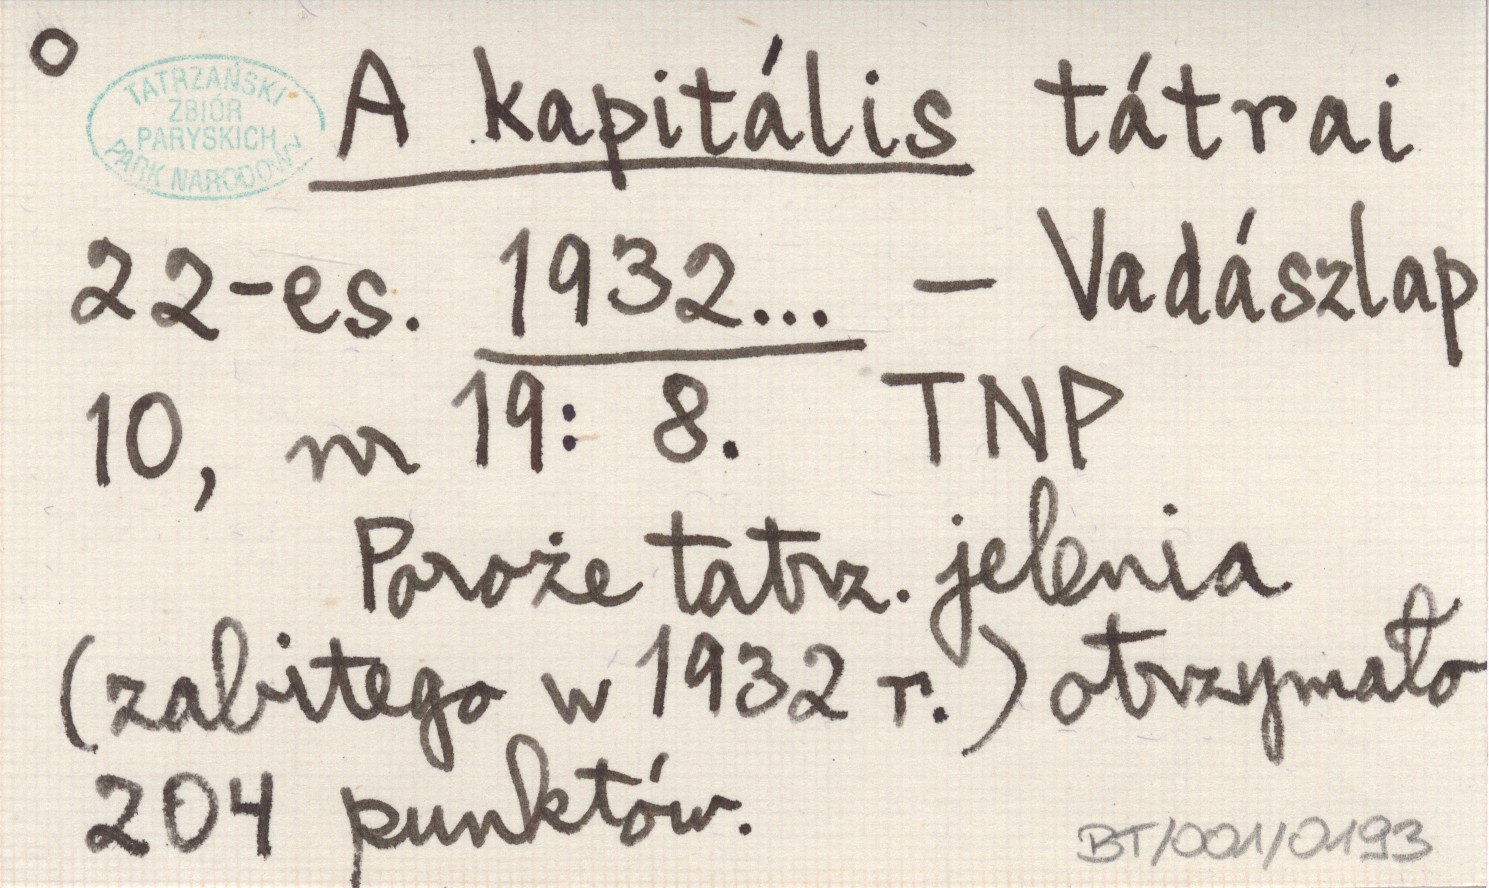 TATRZAŃSKI
ZBIÓR
PARYSKICH
PARK NARODOWY
A kapitális tátrai
22-es. 1932... – Vadászlap
10, nr 19: 8. TNP
Poroże tatrz. jelenia
(zabitego w 1932 r.) otrzymało
204 punktów.
BT/001/0193